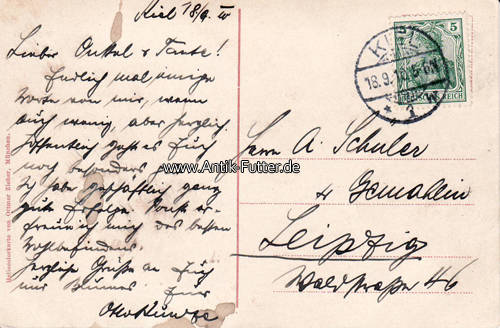 Kiel 18/9. 10
Lieber Onkel & Tante!
Endlich mal einige
Worte von mir, wenn
auch wenig, aber herzlich.
Hoffentlich geht es Euch
noch besonders
aber geschäftlich ganz
gute Erfolge. Sonst er-
freue ich mich des besten
Wohlbefindens.
Herzliche Grüße an Euch
und Euer
Otto
Herrn A. Schuler
& Gemahlin
Leipzig
Waldstraße 46
KIEL
18.9.10.
* 1 w
5
DEUTSCHES REICH
www.Antik-Futter.de
Heliocolorkarte von Ottmar Zieher, München.